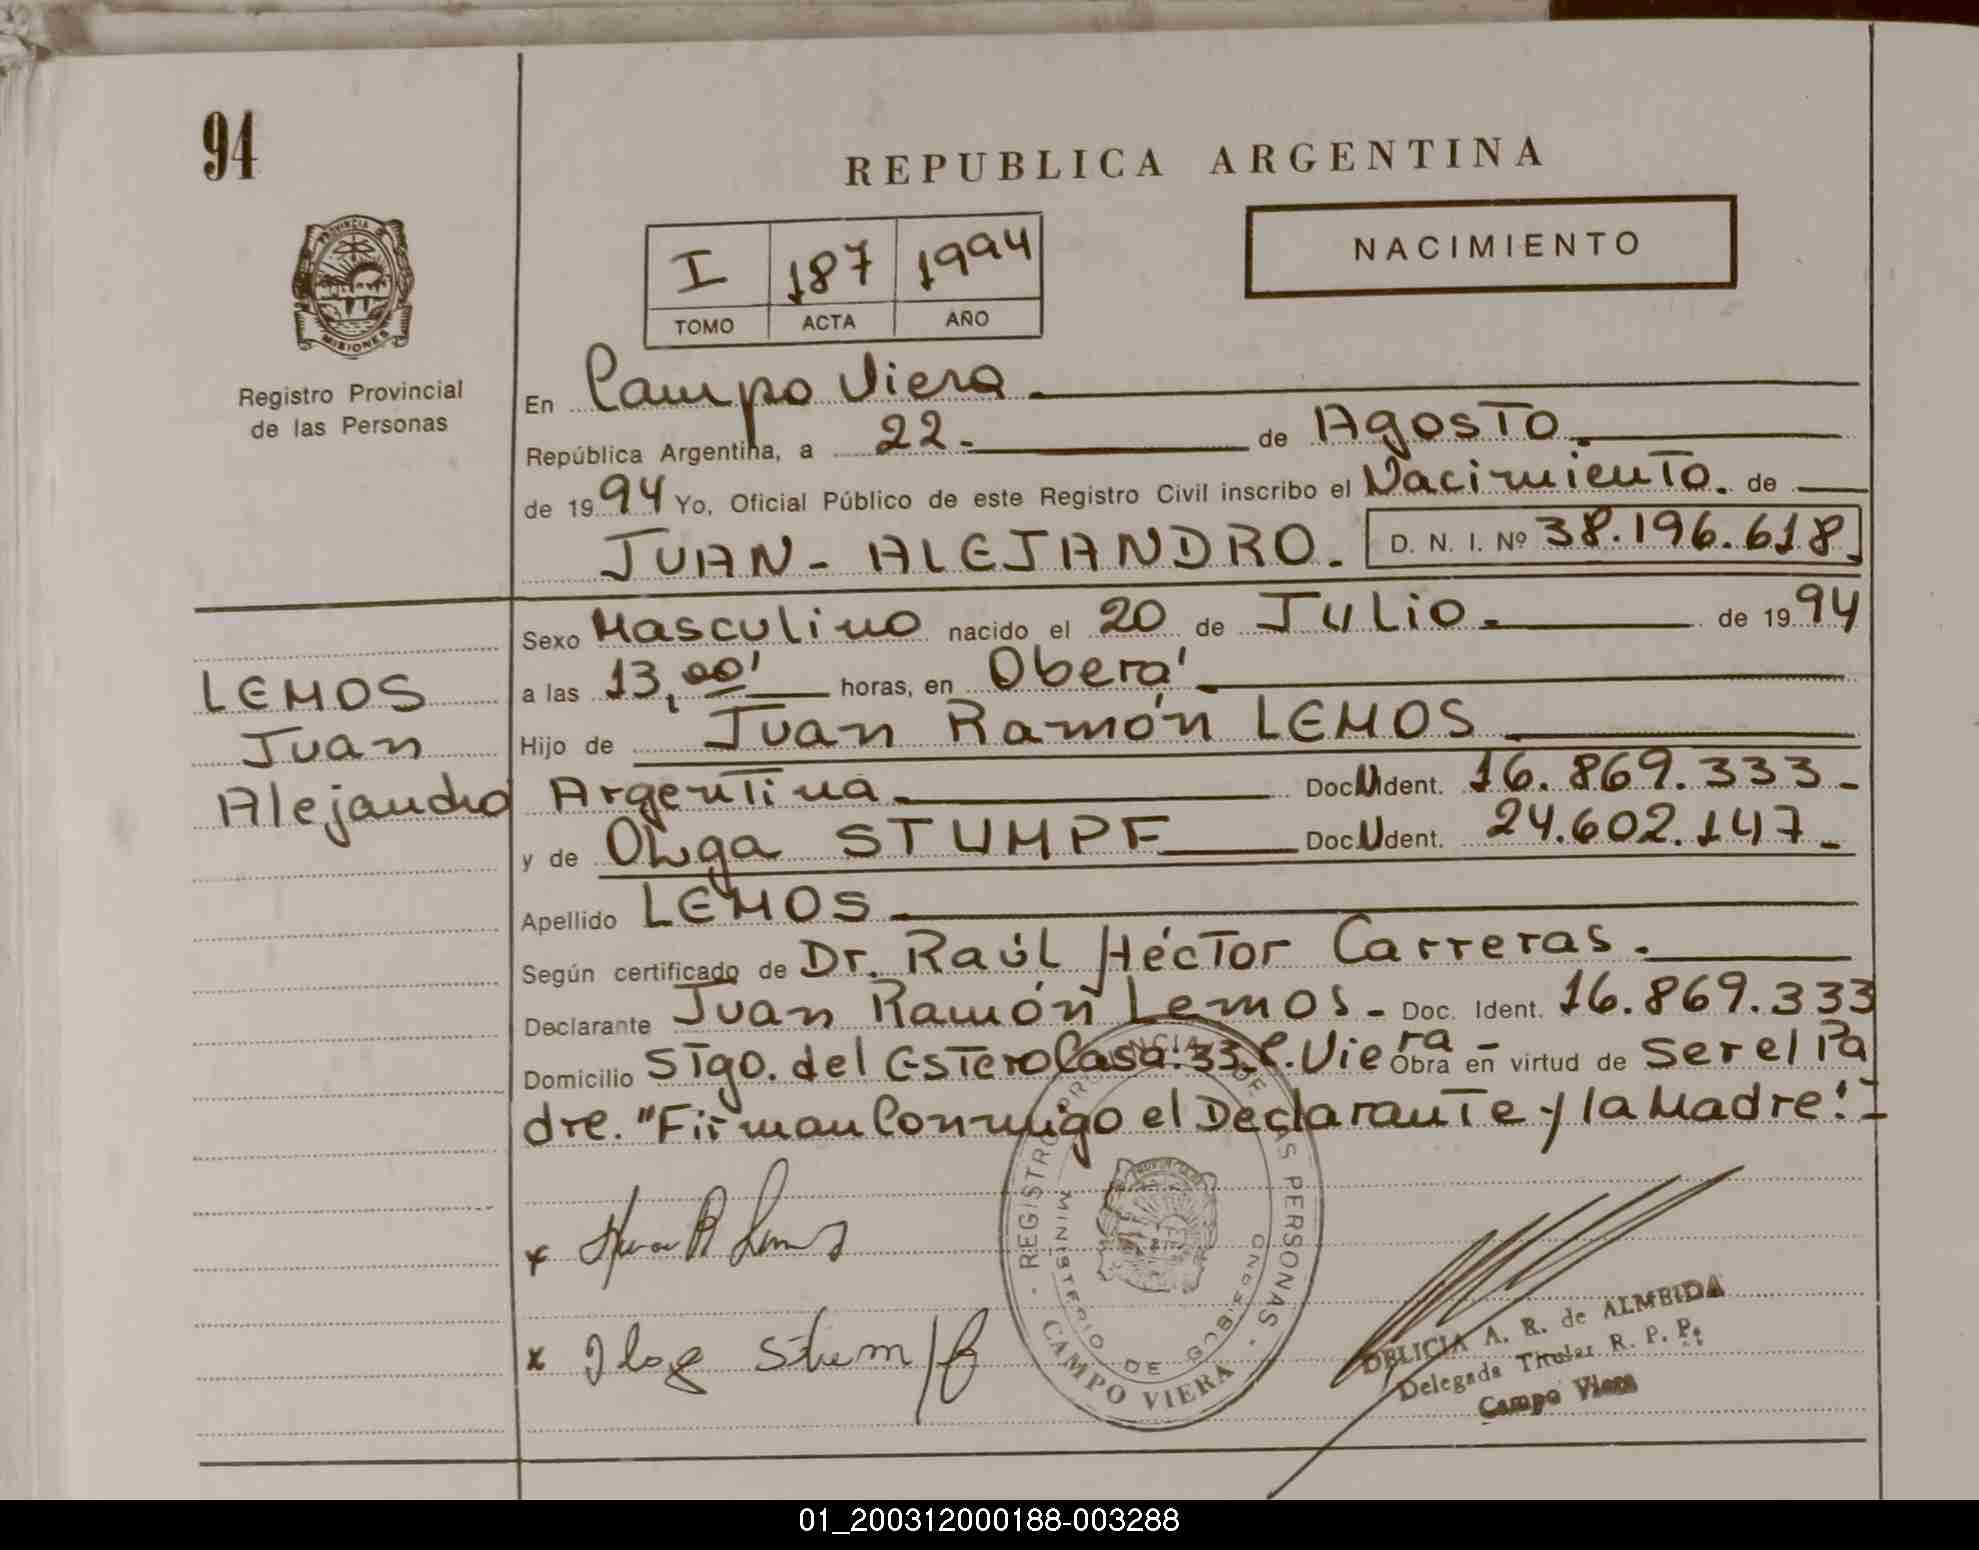 94
REPUBLICA ARGENTINA
PROVINCIA DE
MISIONES
I 187 1994
TOMO ACTA AÑO
NACIMIENTO
Registro Provincial
de las Personas
En Campo Viera
República Argentina, a 22. de Agosto.
de 1994 Yo, Oficial Público de este Registro Civil inscribo el Nacimiento. de
JUAN - ALEJANDRO. D. N. I. Nº 38.196.618.
Sexo Masculino nacido el 20 de Julio. de 1994
a las 13,00' horas, en Oberá
Hijo de Juan Ramón LEMOS
Argentina DocUIdent. 16.869.333.
y de OLga STUMPF DocUIdent. 24.602.147
Apellido LEMOS
LEMOS
Juan
Alejandro
Según certificado de Dr. Raúl Héctor Carreras.
Declarante Juan Ramón Lemos - Doc. Ident. 16.869.333
Domicilio Stgo. del Estero Casa: 33 C. Viera - Obra en virtud de ser el Pa
dre. "Firman Conmigo el Declarante y la Madre".
REGISTRO PROVINCIAL DE LAS PERSONAS
MINISTERIO DE GOBIERNO
CAMPO VIERA
x Juan R Lemos
x Stumpf
DELICIA A. R. de ALMEIDA
Delegada Titular R. P. P.
Campo Viera
01_200312000188-003288